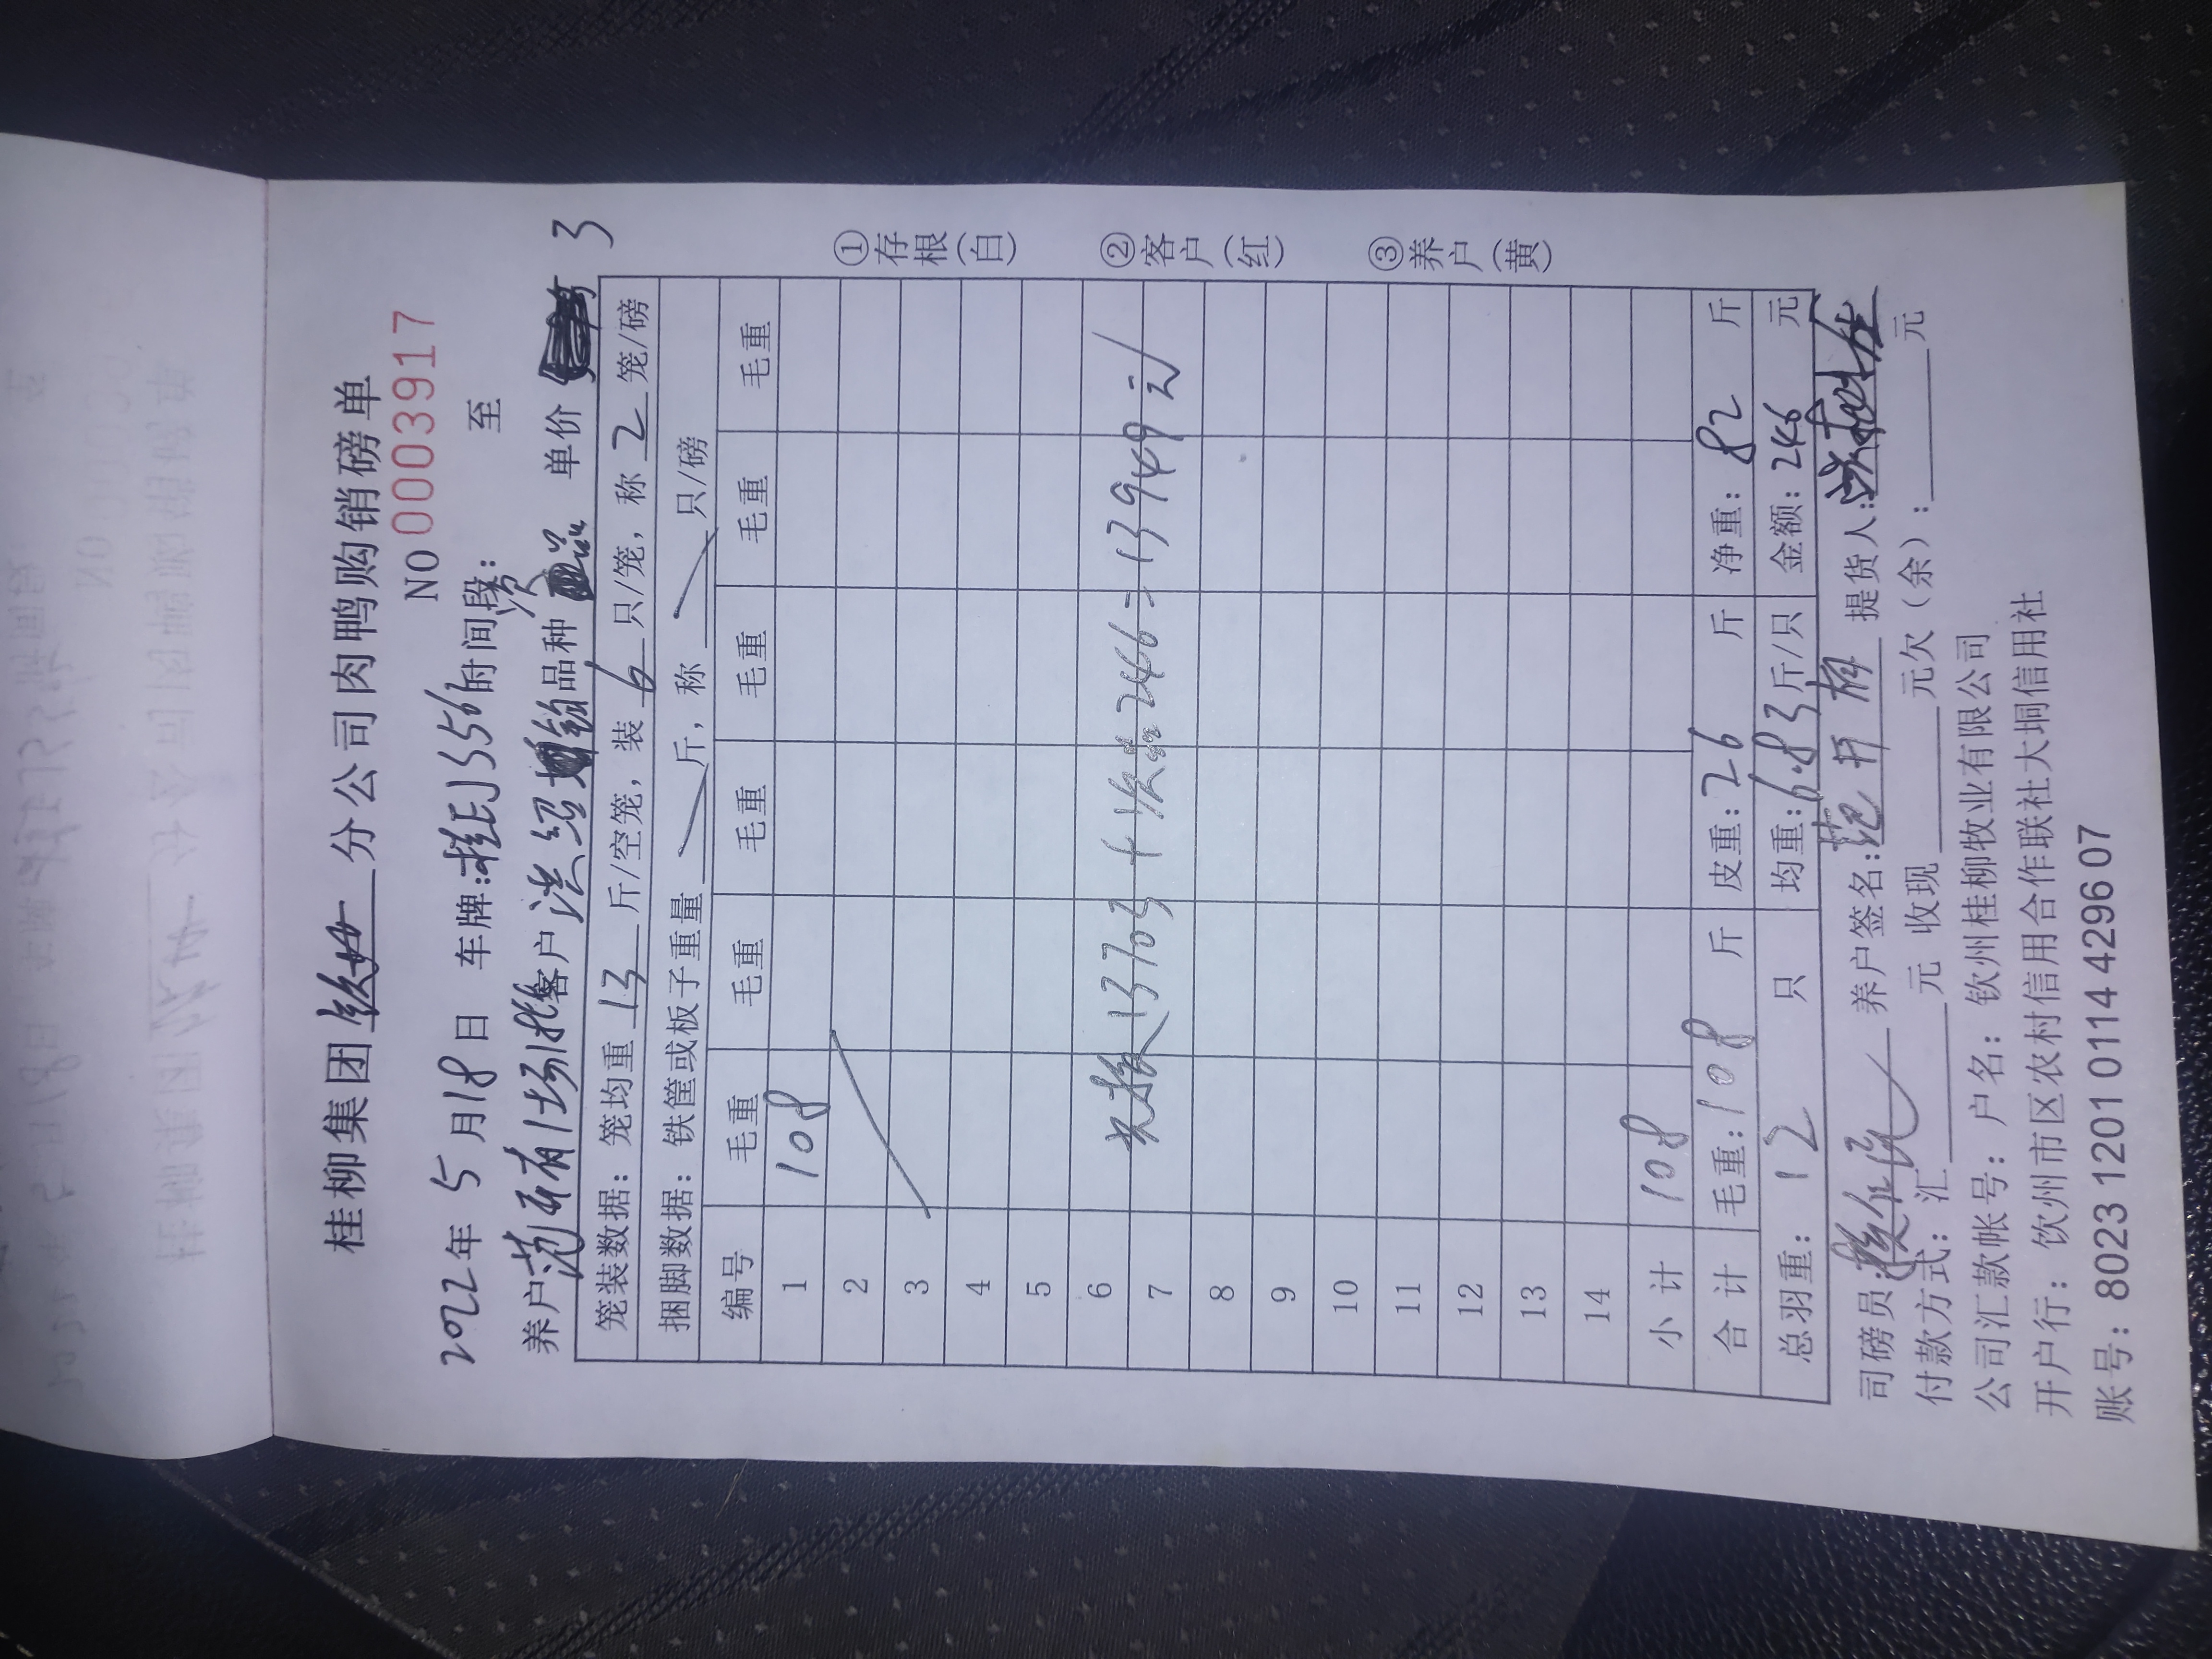 桂柳集团钦州分公司肉鸭购销磅单
NO 0003917
2022年5月18日 车牌:桂EJ3556时间段: 至
养户 客户洪绍 品种次品 单价 3
笼装数据：笼均重 13 斤/空笼，装 6 只/笼，称 2 笼/磅
捆脚数据：铁筐或板子重量 斤，称 只/磅
编号 毛重 毛重 毛重 毛重 毛重 毛重
1 108
2
3
4
5
6
7
13703+次品246=13949元
8
9
10
11
12
13
14
小计 108
合计 毛重:108 斤 皮重:26 斤 净重:82 斤
总羽重:12 只 均重:6.83斤/只 金额:246 元
司磅员: 养户签名:范 提货人:
付款方式：汇 元 收现 元欠（余）: 元
公司汇款帐号：户名：钦州桂柳牧业有限公司
开户行：饮州市区农村信用合作联社大垌信用社
账号：8023 1201 0114 4296 07
①存根(白)
②客户(红)
③养户(黄)